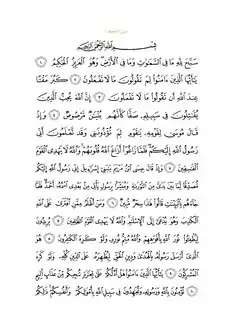 سورة الصف
بسم الله الرحمن الرحيم
سَبَّحَ لِلَّهِ مَا فِي السَّمَٰوَٰتِ وَمَا فِي الْأَرْضِ وَهُوَ الْعَزِيزُ الْحَكِيمُ ١
يَٰٓأَيُّهَا الَّذِينَ ءَامَنُوا لِمَ تَقُولُونَ مَا لَا تَفْعَلُونَ ٢ كَبُرَ مَقْتًا
عِندَ اللَّهِ أَن تَقُولُوا مَا لَا تَفْعَلُونَ ٣ إِنَّ اللَّهَ يُحِبُّ الَّذِينَ
يُقَٰتِلُونَ فِي سَبِيلِهِ صَفًّا كَأَنَّهُم بُنْيَٰنٌ مَّرْصُوصٌ ٤ وَإِذْ
قَالَ مُوسَىٰ لِقَوْمِهِ يَٰقَوْمِ لِمَ تُؤْذُونَنِي وَقَد تَّعْلَمُونَ أَنِّي
رَسُولُ اللَّهِ إِلَيْكُمْ فَلَمَّا زَاغُوا أَزَاغَ اللَّهُ قُلُوبَهُمْ وَاللَّهُ لَا يَهْدِي الْقَوْمَ
الْفَٰسِقِينَ ٥ وَإِذْ قَالَ عِيسَى ابْنُ مَرْيَمَ يَٰبَنِي إِسْرَٰٓءِيلَ إِنِّي رَسُولُ اللَّهِ إِلَيْكُم
مُّصَدِّقًا لِّمَا بَيْنَ يَدَيَّ مِنَ التَّوْرَىٰةِ وَمُبَشِّرًا بِرَسُولٍ يَأْتِي مِن بَعْدِي اسْمُهُ أَحْمَدُ فَلَمَّا
جَاءَهُم بِالْبَيِّنَٰتِ قَالُوا هَٰذَا سِحْرٌ مُّبِينٌ ٦ وَمَنْ أَظْلَمُ مِمَّنِ افْتَرَىٰ عَلَى اللَّهِ
الْكَذِبَ وَهُوَ يُدْعَىٰ إِلَى الْإِسْلَٰمِ وَاللَّهُ لَا يَهْدِي الْقَوْمَ الظَّٰلِمِينَ ٧ يُرِيدُونَ
لِيُطْفِـُٔوا نُورَ اللَّهِ بِأَفْوَٰهِهِمْ وَاللَّهُ مُتِمُّ نُورِهِ وَلَوْ كَرِهَ الْكَٰفِرُونَ ٨ هُوَ
الَّذِي أَرْسَلَ رَسُولَهُ بِالْهُدَىٰ وَدِينِ الْحَقِّ لِيُظْهِرَهُ عَلَى الدِّينِ كُلِّهِ وَلَوْ كَرِهَ
الْمُشْرِكُونَ ٩ يَٰٓأَيُّهَا الَّذِينَ ءَامَنُوا هَلْ أَدُلُّكُمْ عَلَىٰ تِجَٰرَةٍ تُنجِيكُم مِّنْ عَذَابٍ أَلِيمٍ
١٠ تُؤْمِنُونَ بِاللَّهِ وَرَسُولِهِ وَتُجَٰهِدُونَ فِي سَبِيلِ اللَّهِ بِأَمْوَٰلِكُمْ وَأَنفُسِكُمْ ذَٰلِكُمْ